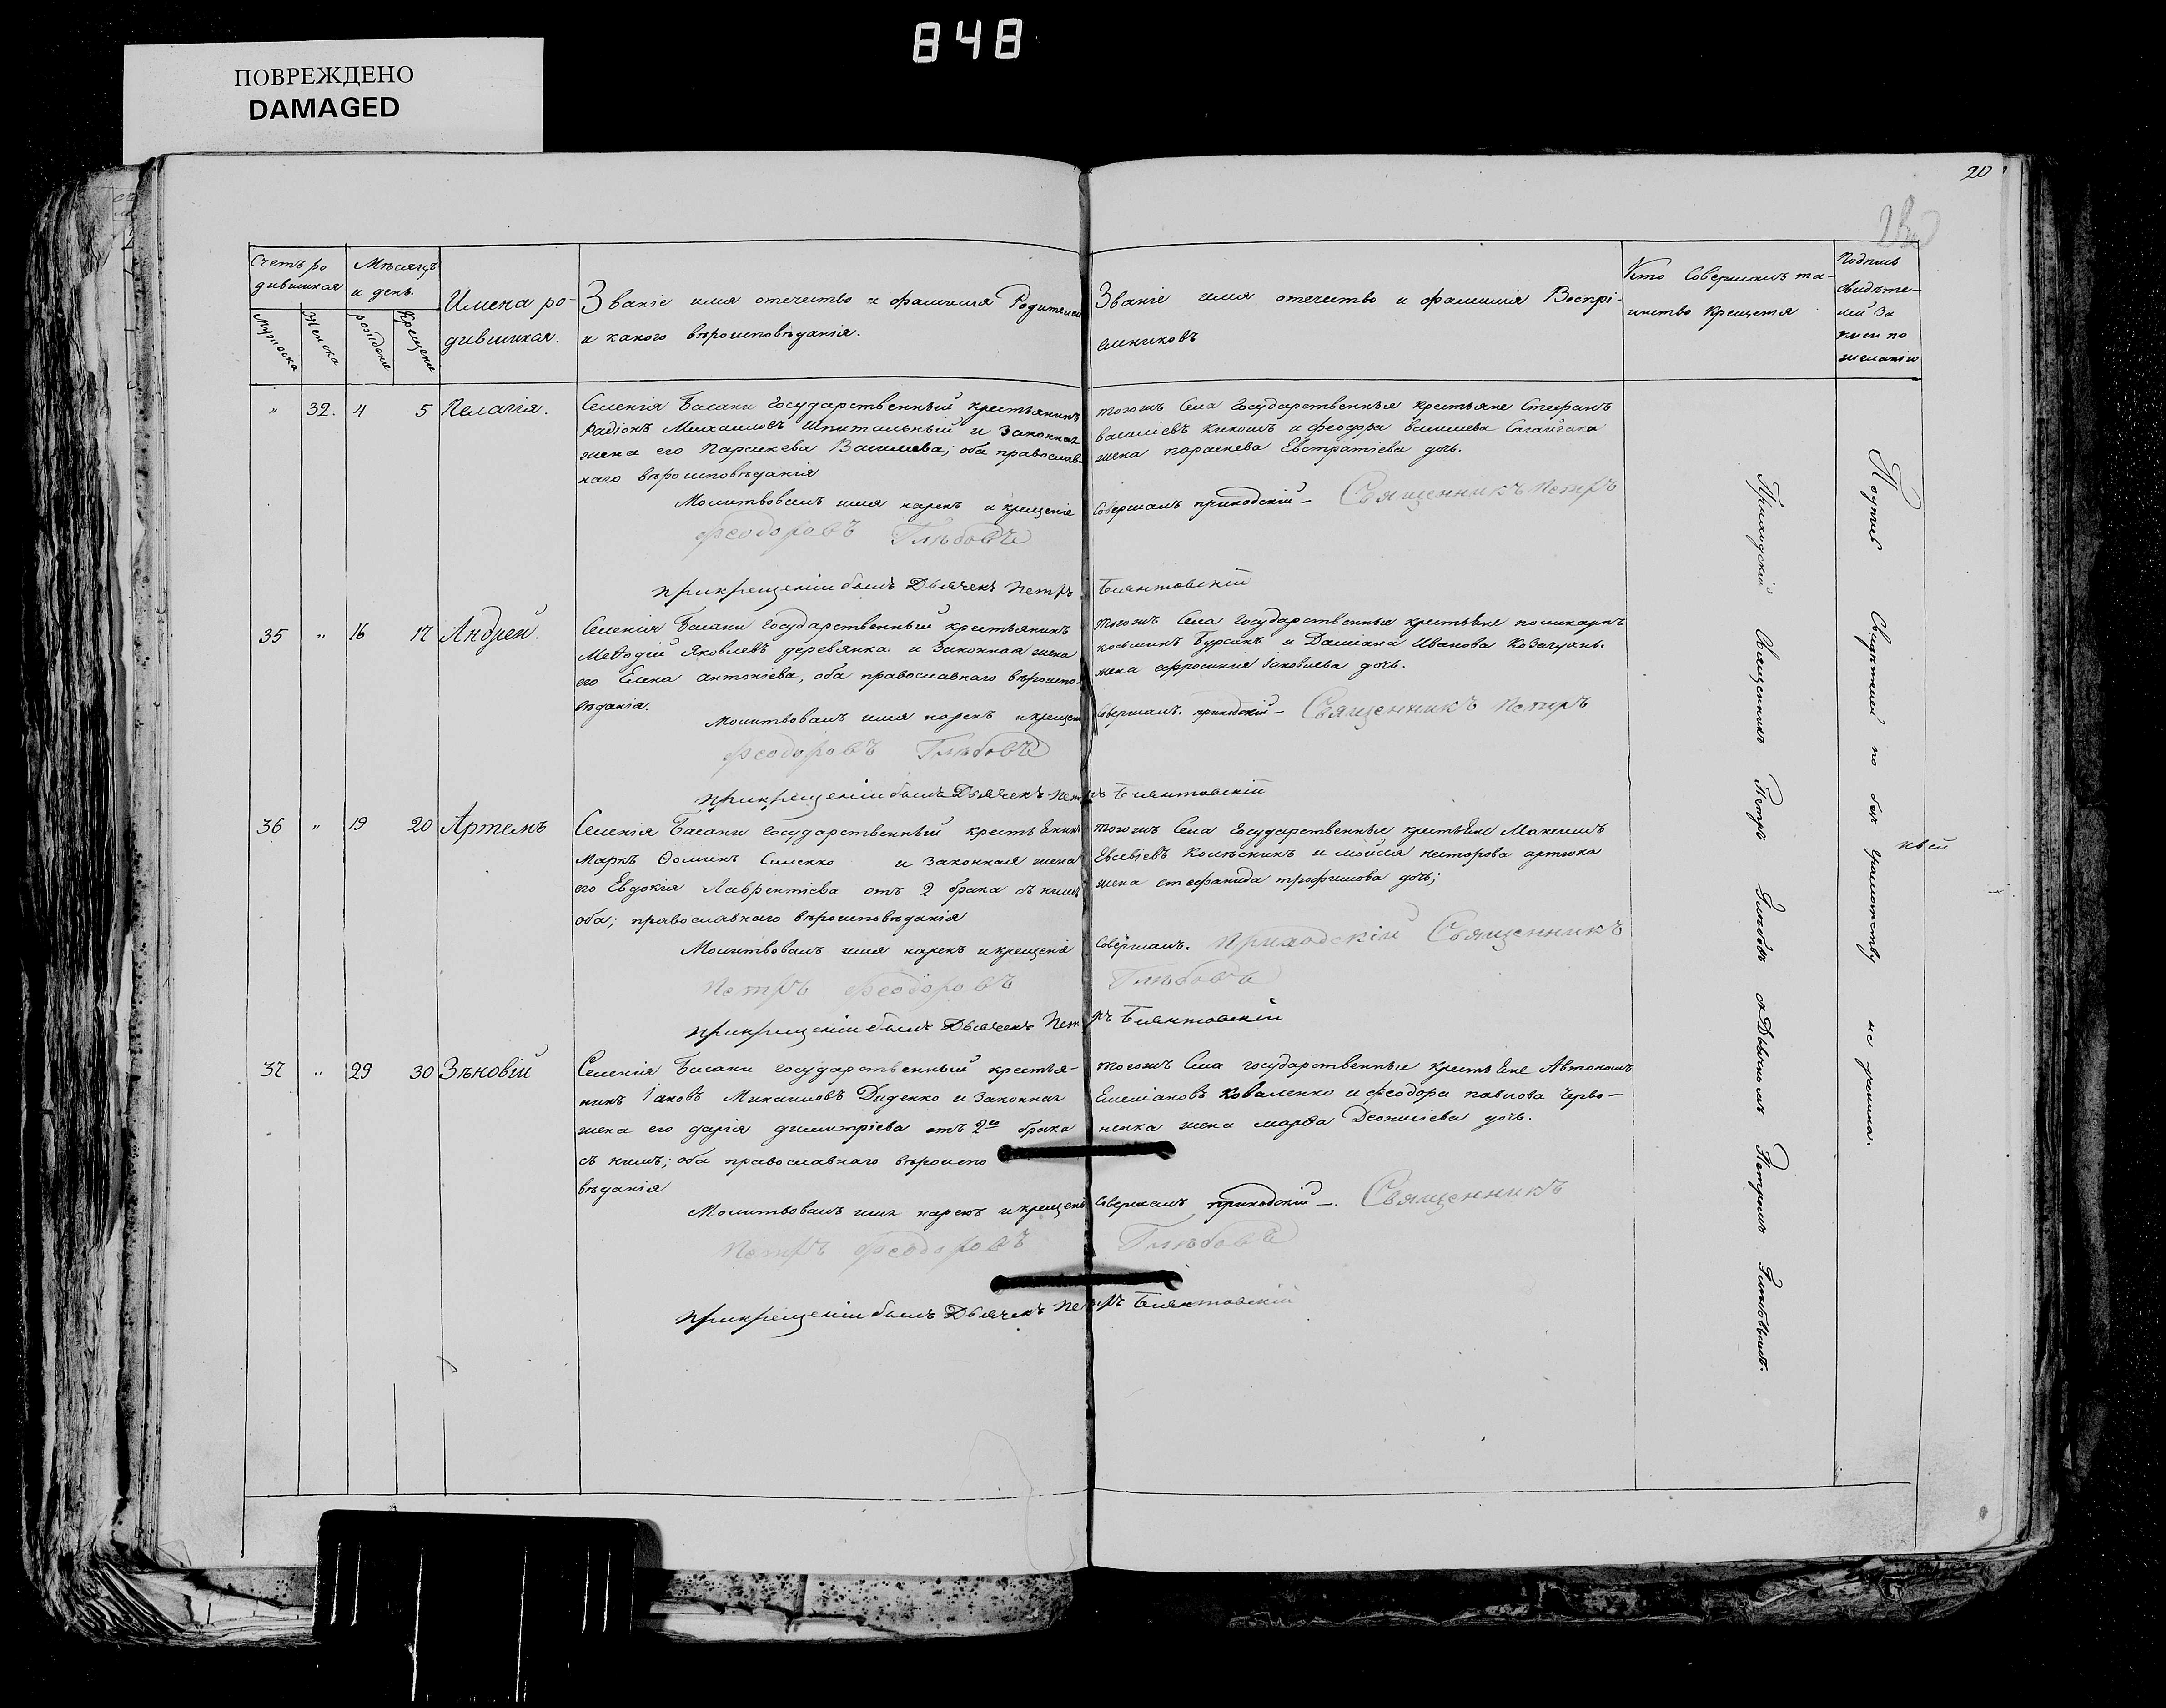 848
ПОВРЕЖДЕНО
DAMAGED
20
Счетъ ро
дившихся
Мѣсяцъ
и день.
Мужеска
Женска
рожденія
Крещенія
Имена ро-
дившихся.
Званіе имя отечество и фамилія Родителей
и какого вѣроисповѣданія.
Званіе имя отечество и фамилія Воспрі-
емниковъ
Кто Совершалъ та-
инство Крещенія
Подпись
свидѣте-
лей за
писи по
желанію
" 32. 4 5 Пелагія.
Селенія Басани Государственный крестьянинъ
Радіонъ Михаиловъ Шпитальный и Законная
жена его Параскева Васильева; оба православ-
наго вѣроисповѣданія
тогожъ Села Государственныя крестьяне Стефанъ
василіевъ и феодора
жена параскева Евстратіева дочь.
Молитвовалъ имя нарекъ и крещеніе Совершалъ приходскій – Священникъ Петръ
Феодоровъ Глѣбовъ
при крещеніи былъ Дьячекъ Петръ
35 " 16 17 Андрей.
Селенія Басани Государственный крестьянинъ
Меѳодій Яковлевъ деревянка и Законная жена
его Елена антоніева, оба православнаго вѣроиспо-
вѣданія.
тогожъ Села Государственныя крестьяне поликарпъ
козьминъ Бурсикъ и Даміана Иванова
жена ефросинія Іаковлева дочь.
Молитвовалъ имя нарекъ и крещеніе Совершалъ. приходскій – Священникъ Петръ
Феодоровъ Глѣбовъ
при крещеніи былъ Дьячекъ Петръ
36 " 19 20 Артемъ
Селенія Басани Государственный крестьянинъ
Маркъ Ѳоминъ Силенко и Законная жена
его Евдокія Лаврентіева отъ 2 брака съ нимъ
оба; православнаго вѣроисповѣданія
тогожъ Села Государственые крестьяне Максимъ
Евсевіевъ Колѣсникъ и
жена стефанида трофимова дочь;
Молитвовалъ имя нарекъ и крещеніе Совершалъ. Приходскій Священникъ
Петръ Феодоровъ Глѣбовъ
при крещеніи былъ Дьячекъ Петръ
37 " 29 30 Зѣновій
Селенія Басани государственный крестья-
нинъ Іаковъ Михаиловъ Диденко и Законная
жена его дарія димитріева отъ 2го брака
съ нимъ; оба православнаго вѣроиспо
вѣданія
тогожъ Села государственые крестьяне Автономъ
Емеліановъ Коваленко и феодора павлова Черво-
жена марѳа дочь.
Молитвовалъ имя нарекъ и крещеніе Совершалъ приходскій –. Священникъ
Петръ Феодоровъ Глѣбовъ
при крещеніи былъ Дьячекъ Петръ
Приходскій Священникъ Петръ Глѣбовъ съ Дьячкомъ Петромъ Глѣбовымъ.
Подписъ Свидѣтелей по без грамотству